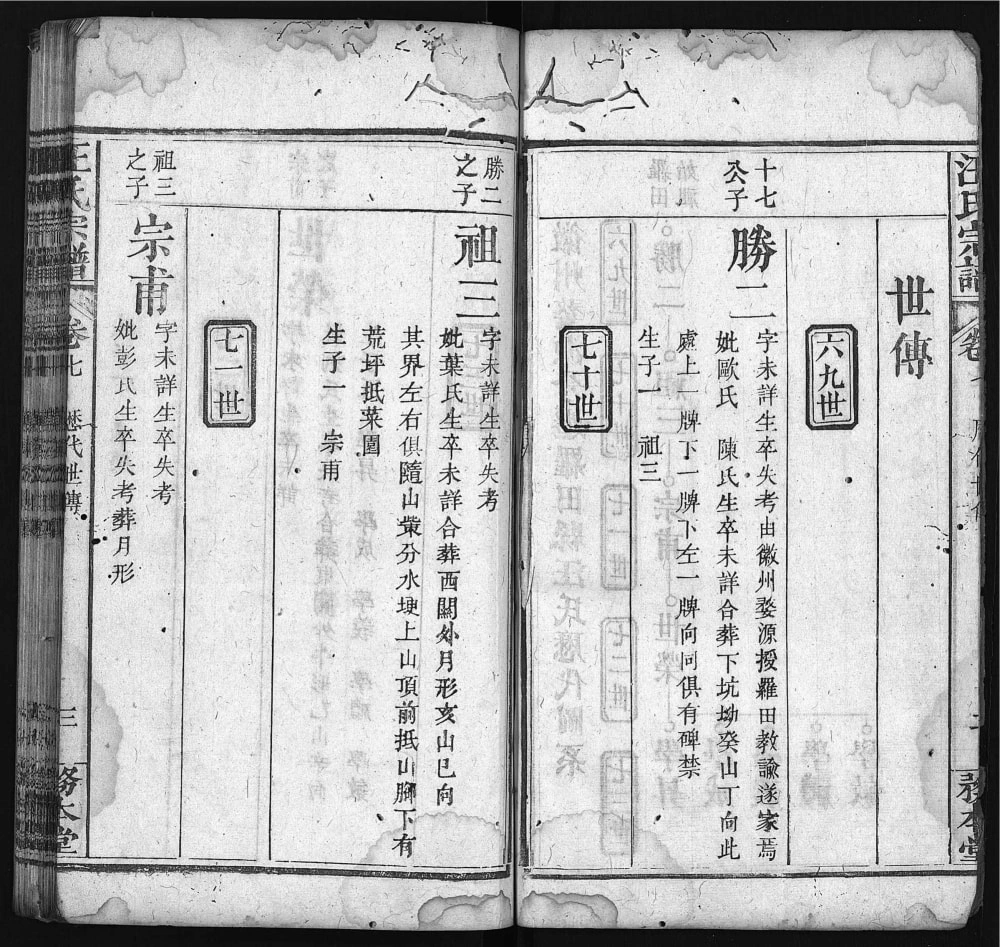 汪氏宗譜
世傳
六九世
十七
公子
勝二
字未詳生卒失考由徽州婺源授羅田教諭遂家焉
妣歐氏 陳氏生卒未詳合葬下坑坳癸山丁向此
處上一牌下一牌下左一牌向同俱有碑禁
生子一 祖三
七十世
勝二
之子
祖三
字未詳生卒失考
妣葉氏生卒未詳合葬西關外月形亥山巳向
其界左右俱隨山蒙分水埂上山頂前抵山腳下有
荒坪抵菜園
生子一 宗甫
七一世
祖三
之子
宗甫
字未詳生卒失考
妣彭氏生卒失考葬月形
汪氏宗譜
卷七
歷代世傳
三
務本堂